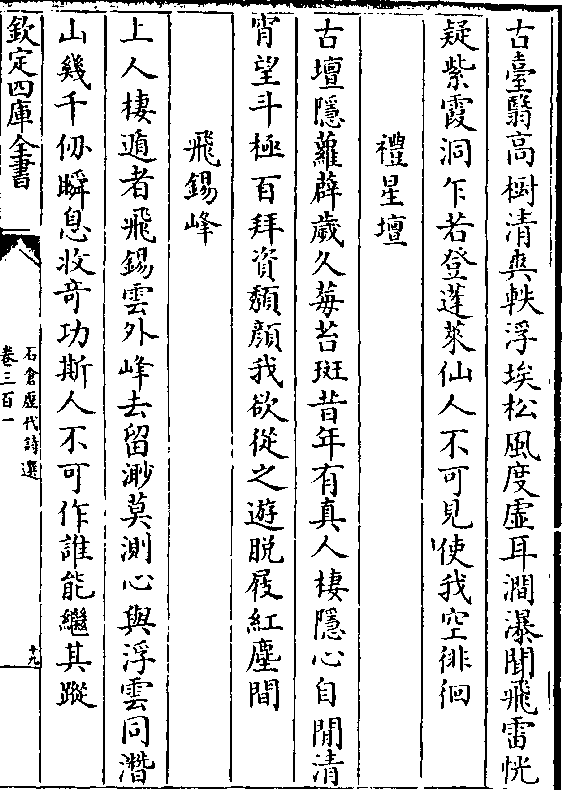 古臺翳高樹清與軼浮埃松風度虛耳澗瀑聞飛雷恍
疑紫霞洞乍若登蓬萊仙人不可見使我空徘徊
禮星壇
古壇隱蘿薜歲久莓苔斑昔年有真人棲隱心自閒清
宵望斗極百拜資頽顔我欲從之遊脱屐紅塵間
飛錫峰
上人棲遁者飛錫雲外峰去留渺莫測心與浮雲同潛
山幾千仞瞬息收竒功斯人不可作誰能繼其蹤
欽定四庫全書
石倉歷代詩選
卷三百一
十九